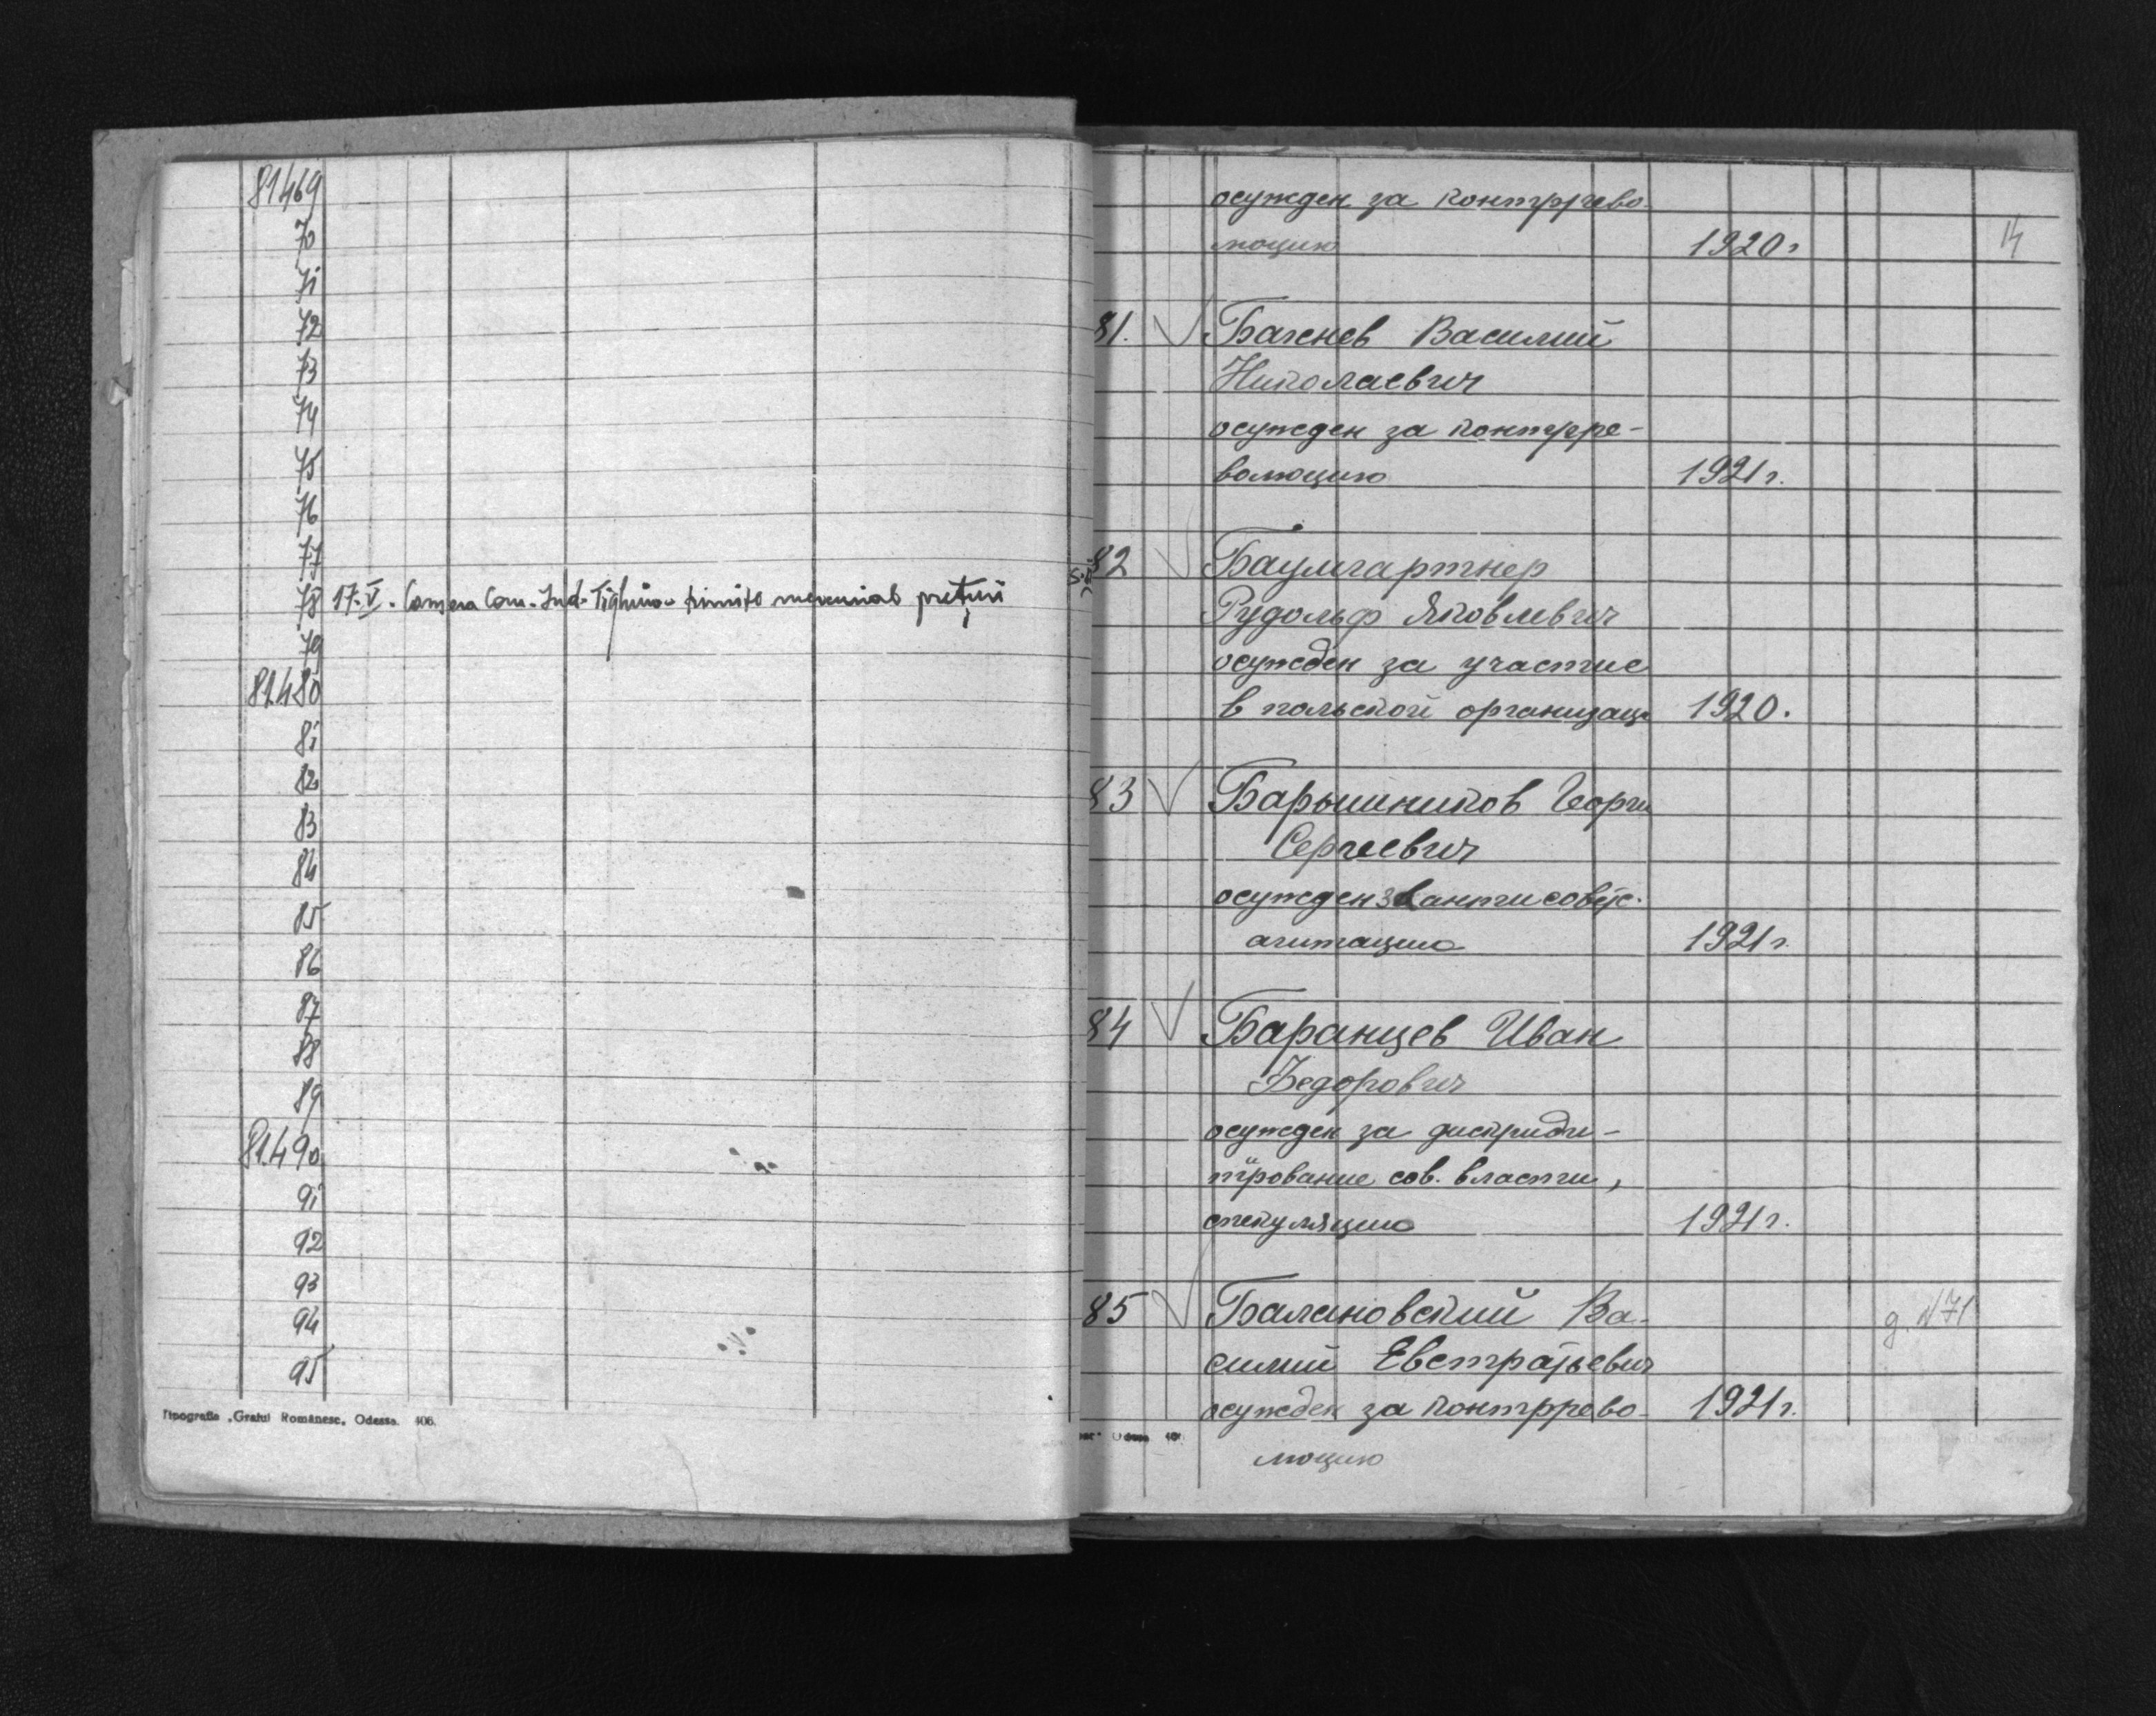 81469
70
71
72
73
74
75
76
77
78 17.V. Camera Com. Jud. Tighina trimite mercurial prețuri
79
81480
81
82
83
84
85
86
87
88
89
81490
91
92
93
94
95
Tipografia „Graiul Românesc„ Odessa. 406.
14
осужден за контррево-
люцию 1920г
81. Баженев Василий
Николаевич
осужден за контрре-
волюцию 1921г.
82 Баумгартнер
Рудольф Яковлевич
осужден за участие
в польской организац. 1920.
83 Барышников Георги
Сергеевич
осужден за антисовус.
агитацию 1921г.
84 Баранцев Иван
Федорович
осужден за дискриди-
тирование сов. власти,
спекуляцию 1921г.
85 Балановский Ва- д. N71
силий Евстратьевич
осужден за контррево- 1921г.
люцию